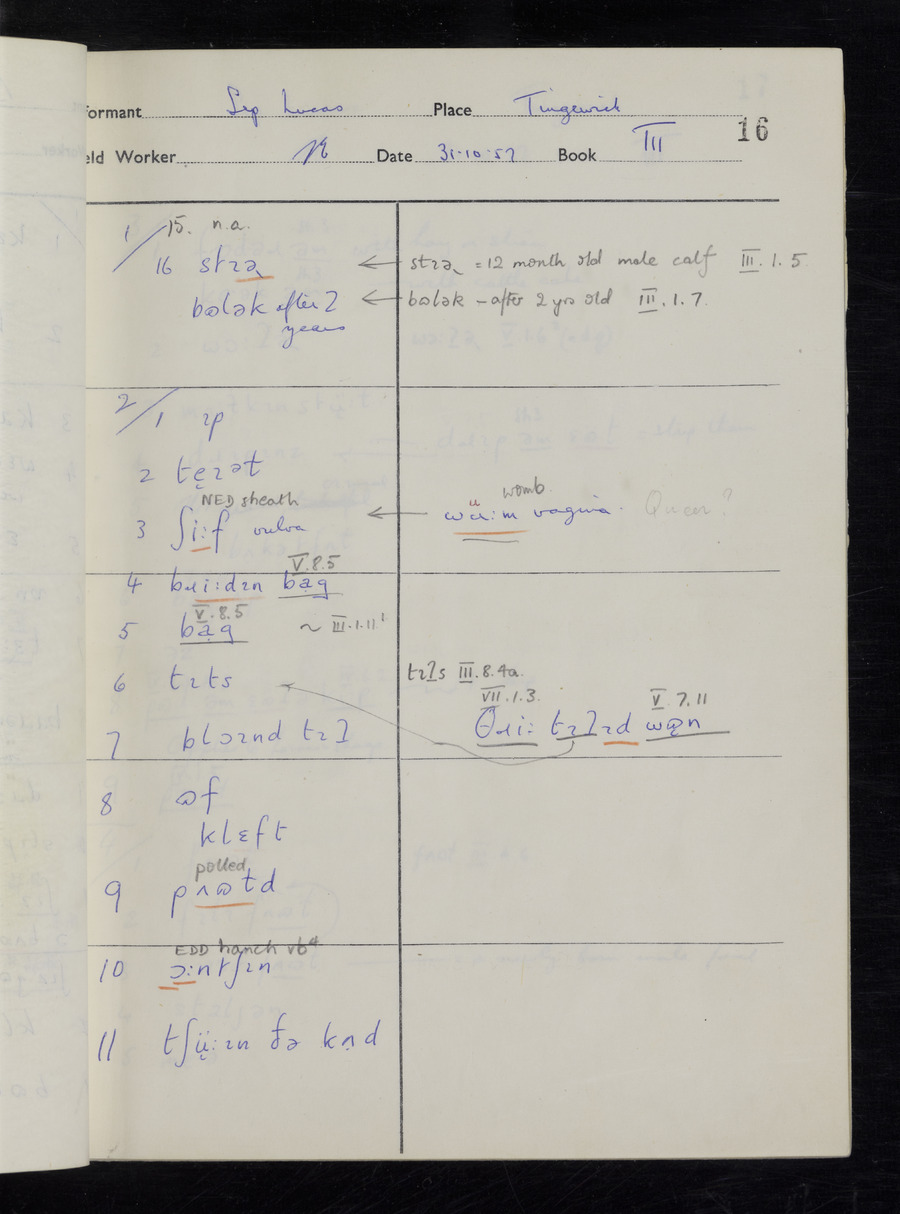 formant Sep Lucas Place Tingewick
16
eld Worker Date 31·10·57 Book III
1/15. n.a.
16 stɪə ← stɪə = 12 month old male calf III. 1. 5
bɷlək after 2 years ← bɷlək – after 2 yrs old III. 1. 7.
2/1 ɪp
2 tɛ̣ɹət
NED sheath
womb
3 ʃi:f vulva ← wu̇:m vagina. Queer?
V. 8. 5
4 bɹi:dɪn bag
V. 8. 5
5 bag ~ III. 1. 11
6 tɪts
tɪɫs III. 8. 4a.
VII. 1. 3. V. 7. 11
θɹi: tɪɫɪd wɷn
7 blɔɪnd tɪɫ
8 ɷf
klɛft
polled
9 pʌɷtd
EDD hanch vb4
10 ɔ:ntʃɪn
11 tʃü:ɪn ðə kʌd